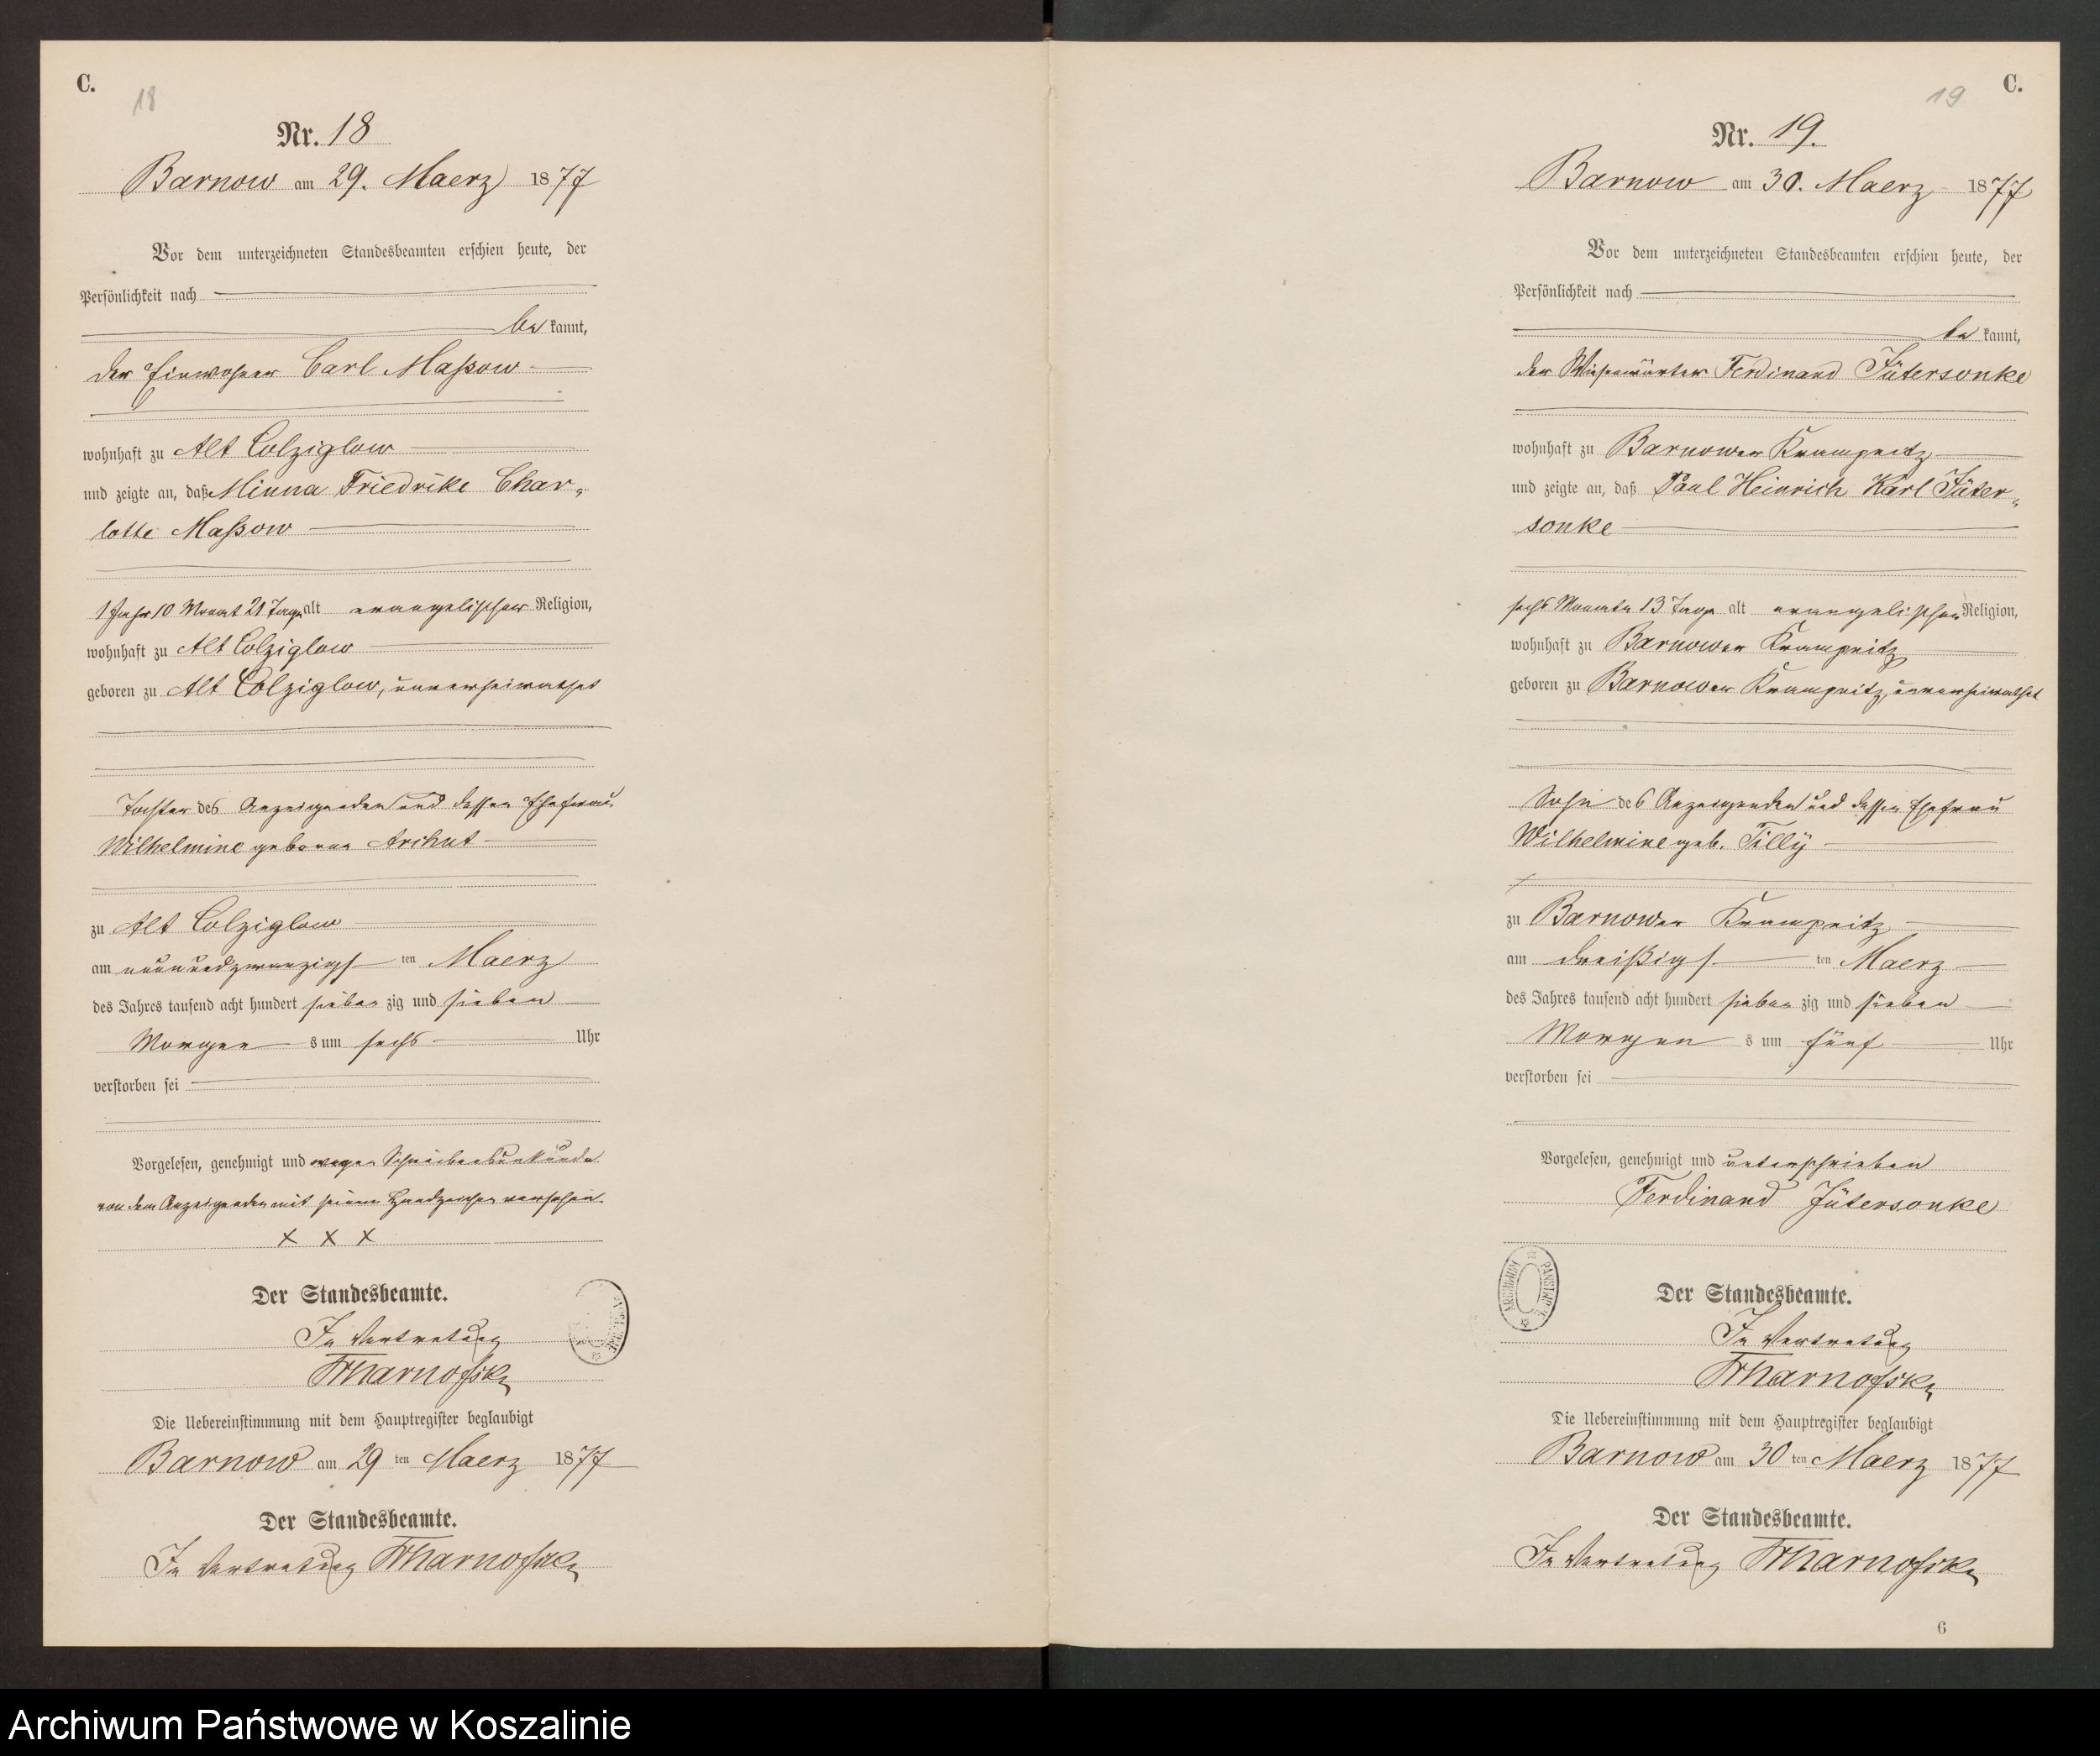 C.
18
Nr. 18
Barnow am 29. Maerz 1877
Vor dem unterzeichneten Standesbeamten erschien heute, der
Persönlichkeit nach
be kannt,
der Einwohner Carl Maßow
wohnhaft zu Alt Colziglow
und zeigte an, daß Minna Friedrike Char-
lotte Maßow
1 Jahr 10 Monat 21 Tage alt evangelischer Religion,
wohnhaft zu Alt Colziglow
geboren zu Alt Colziglow, unverheirathet
Tochter des Anzeigenden und dessen Ehefrau
Wilhelmine geborene Arckut
zu Alt Colziglow
am neunundzwanzigs ten Maerz
des Jahres tausend acht hundert sieben zig und sieben
Morgen s um sechs Uhr
verstorben sei
Vorgelesen, genehmigt und wegen Schreibensunkunde
von dem Anzeigenden mit seinem Handzeichen versehen.
x x x
Der Standesbeamte.
In Vertretung
Die Uebereinstimmung mit dem Hauptregister beglaubigt
Barnow am 29 ten Maerz 1877
Der Standesbeamte.
In Vertretung
C.
19
Nr. 19.
Barnow am 30. Maerz 1877
Vor dem unterzeichneten Standesbeamten erschien heute, der
Persönlichkeit nach
be kannt,
der Wiesenwärter Ferdinand Jütersonke
wohnhaft zu Barnower Krampnitz
und zeigte an, daß Paul Heinrich Karl Jüter-
sonke
sechs Monate 13 Tage alt evangelischer Religion,
wohnhaft zu Barnower Krampnitz
geboren zu Barnower Krampnitz, unverheirathet
Sohn des Anzeigenden und dessen Ehefrau
Wilhelmine geb. Tilly
zu Barnower Krampnitz
am dreißigs ten Maerz
des Jahres tausend acht hundert sieben zig und sieben
Morgen s um fünf Uhr
verstorben sei
Vorgelesen, genehmigt und unterschrieben
Ferdinand Jütersonke
ARCHIWUM PAŃSTWOWE
Der Standesbeamte.
In Vertretung
Die Uebereinstimmung mit dem Hauptregister beglaubigt
Barnow am 30 ten Maerz 1877
Der Standesbeamte.
In Vertretung
6
Archiwum Państwowe w Koszalinie